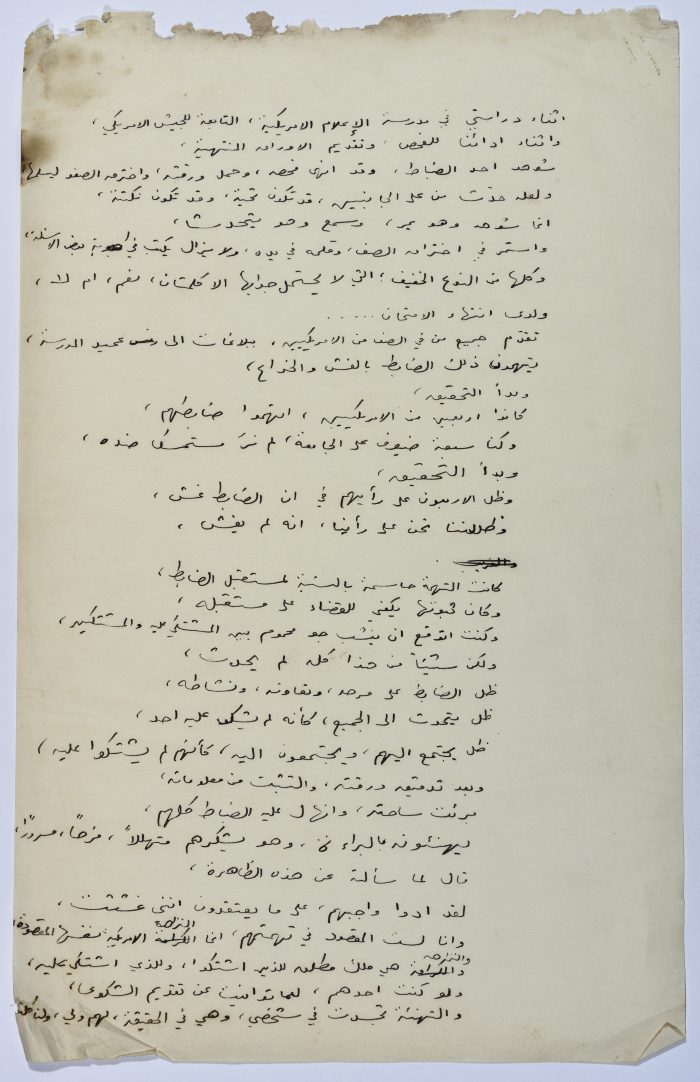 اثناء دراستي في مدرسة الإعلام الامريكية، التابعة للجيش الامريكي،
واثناء ادائنا للفحص، وتقديم الاوراق المنتهية،
شوهد احد الضباط، وقد انهى فحصه، وحمل ورقته، واخترق الصف ليسلمها،
ولعله حدّث من على الجانبين، قد تكون تحية، وقد تكون نكتة،
انما شوهد وهو يمر، وسمع وهو يتحدث،
واستمر في اختراق الصف، وقلمه في يده، ولا يزال يكتب في اجوبة بعض الاسئلة،
وكلها من النوع الخفيف، التي لا يحتمل جوابها الا كلمتان، نعم، ام لا،
ولدى انتهاء الامتحان.....
تقدّم جميع من في الصف من الامريكيين، ببلاغات الى عميد المدرسة،
يتهمون ذلك الضابط بالغش والخداع،
وبدأ التحقيق،
كانوا اربعين من الامريكيين، اتهموا ضابطهم،
وكنا سبعة ضيوف على الجامعة، لم نرَ مستمسكا ضده،
وبدأ التحقيق،
وظل الاربعون على رأيهم في ان الضابط غش،
وظللنا نحن على رأينا، انه لم يغش،
كانت التهمة حاسمة بالنسبة لمستقبل الضابط،
وكان ثبوتها يكفي للقضاء على مستقبله،
وكنت اتوقع ان ينشب جو محموم بين المشتكى عليه والمشتكين،
ولكن شيئاً من هذا كله لم يحدث،
ظل الضابط على مرحه، وتعاونه، ونشاطه،
ظل يتحدث الى الجميع، كأنه لم يشكو عليه احد،
ظل يجتمع اليهم، ويجتمعون اليه، كأنهم لم يشتكوا عليه،
وبعد تدقيق ورقته، والتثبت من معلوماته،
برئت ساحته، وانهال عليه الضباط كلهم،
يهنئونه بالبراءة، وهو يشكرهم متهللاً، فرحاً، مسروراً،
قال لما سألته عن هذه الظاهرة،
لقد ادوا واجبهم، على ما يعتقدون انني غششت،
وانا لست المقصود في تهمتهم، انما النزاهة الامريكية نفسها المقصودة،
والنزاهة هي ملك مطلق للذين اشتكوا، وللذي اشتكي عليه،
ولو كنت احدهم، لما توانيت عن تقديم الشكوى،
والتهنئة تجسدت في شخصي، وهي في الحقيقة، لهم ولي،